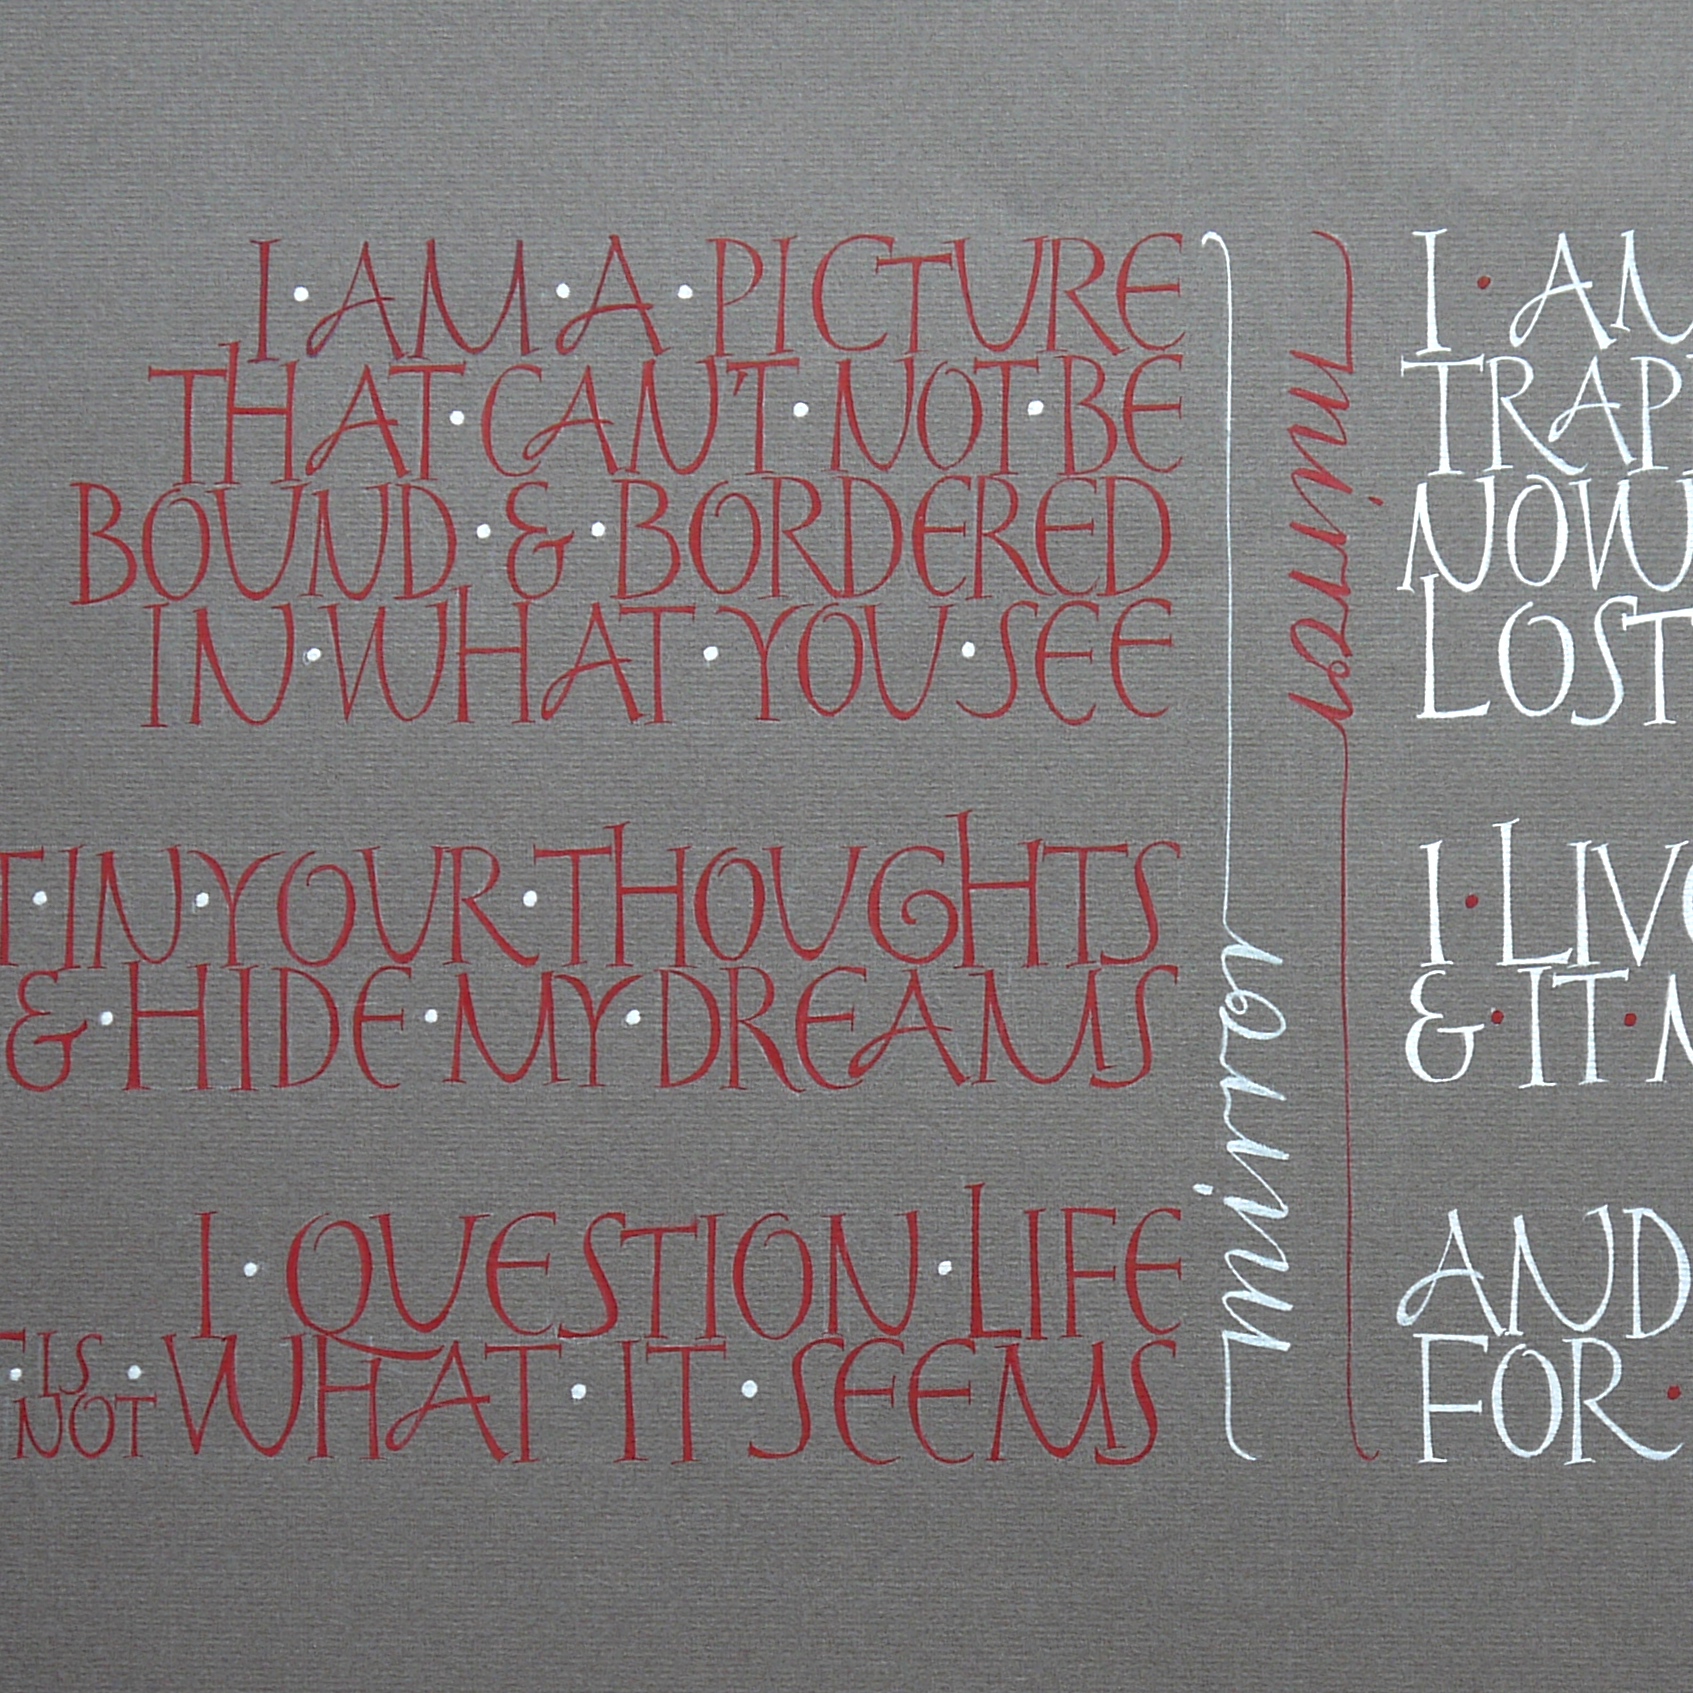 I·AM·A·PICTURE
THAT·CAN'T·NOT·BE
BOUND·&·BORDERED
IN·WHAT·YOU·SEE
T·IN·YOUR·THOUGHTS
&·HIDE·MY·DREAMS
I·QUESTION·LIFE
·IS NOT·WHAT·IT·SEEMS
mirror
mirror
I·AM
TRAP
NOW
LOST
I·LIV
&·IT·
AND
FOR·